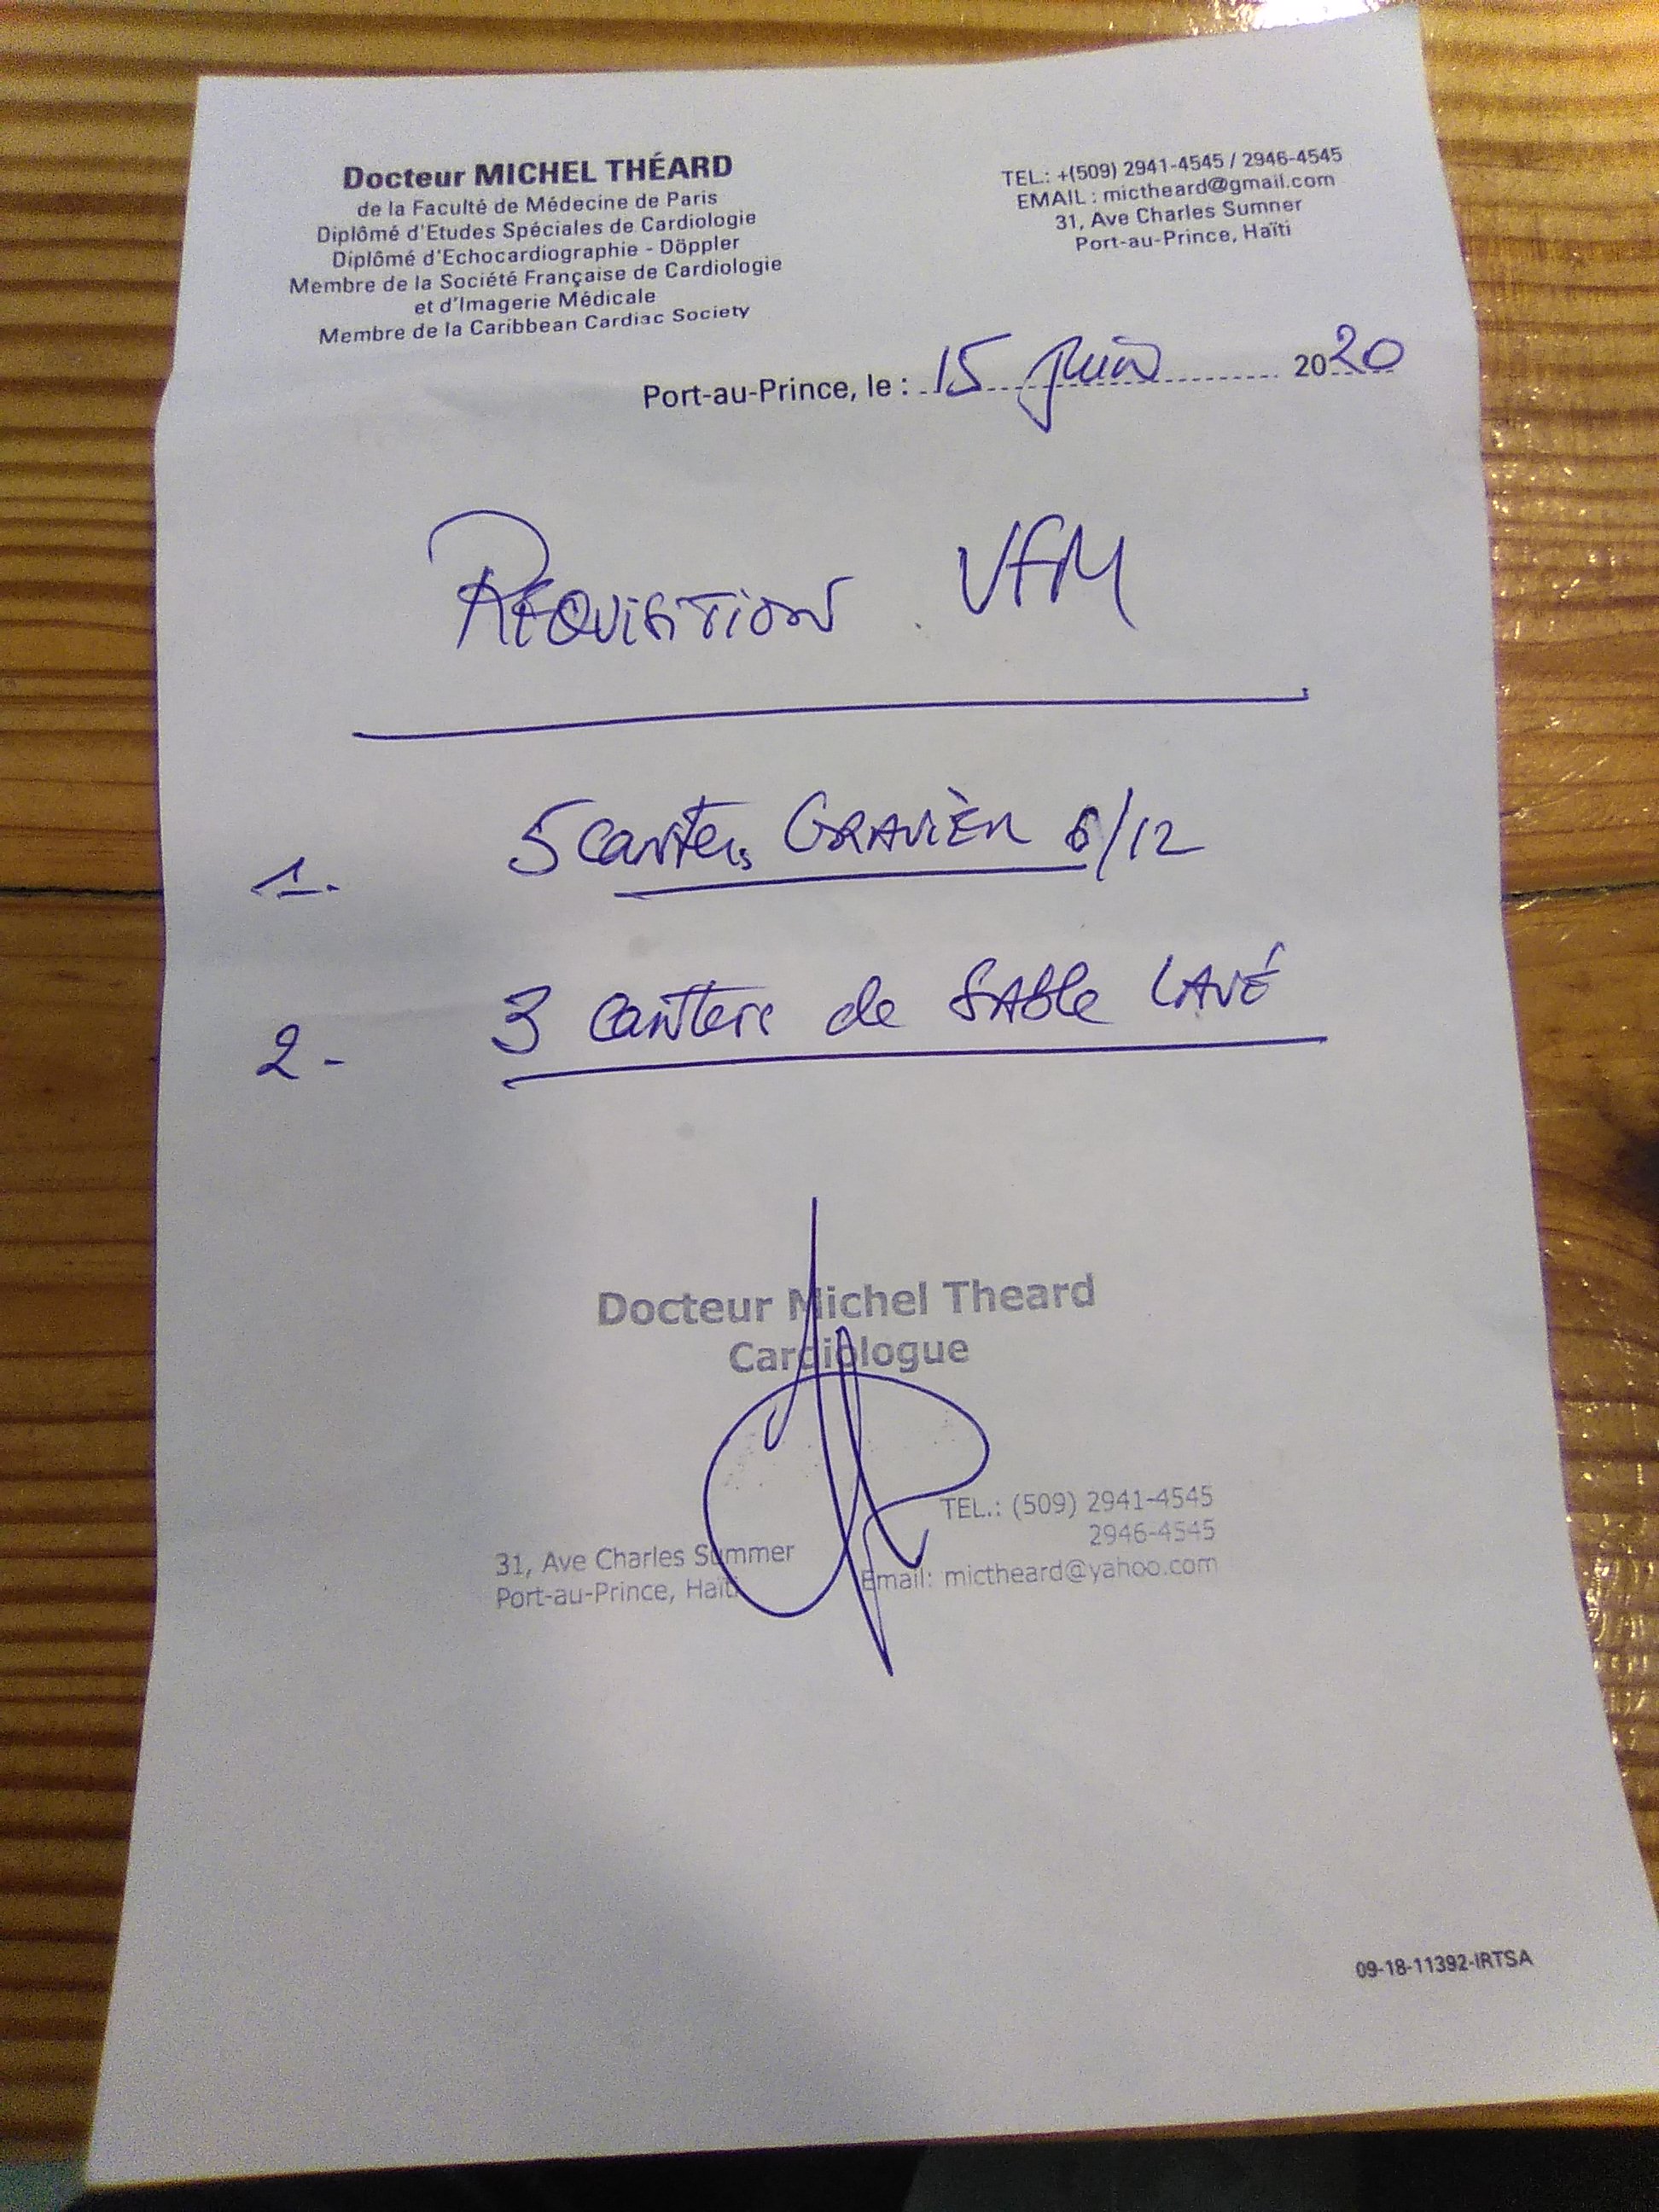 Docteur MICHEL THÉARD
de la Faculté de Médecine de Paris
Diplômé d'Etudes Spéciales de Cardiologie
Diplômé d'Echocardiographie - Döppler
Membre de la Société Française de Cardiologie
et d'Imagerie Médicale
Membre de la Caribbean Cardiac Society
TEL.: +(509) 2941-4545 / 2946-4545
EMAIL : mictheard@gmail.com
31, Ave Charles Sumner
Port-au-Prince, Haïti
Port-au-Prince, le : 15 Juin 2020
REQUISITION VFM
1. 5 GRAVIER 6/12
2 - 3 de SABLE LAVÉ
Docteur Michel Theard
Cardiologue
31, Ave Charles Summer
Port-au-Prince, Haiti
TEL.: (509) 2941-4545
2946-4545
Email: mictheard@yahoo.com
09-18-11392-IRTSA